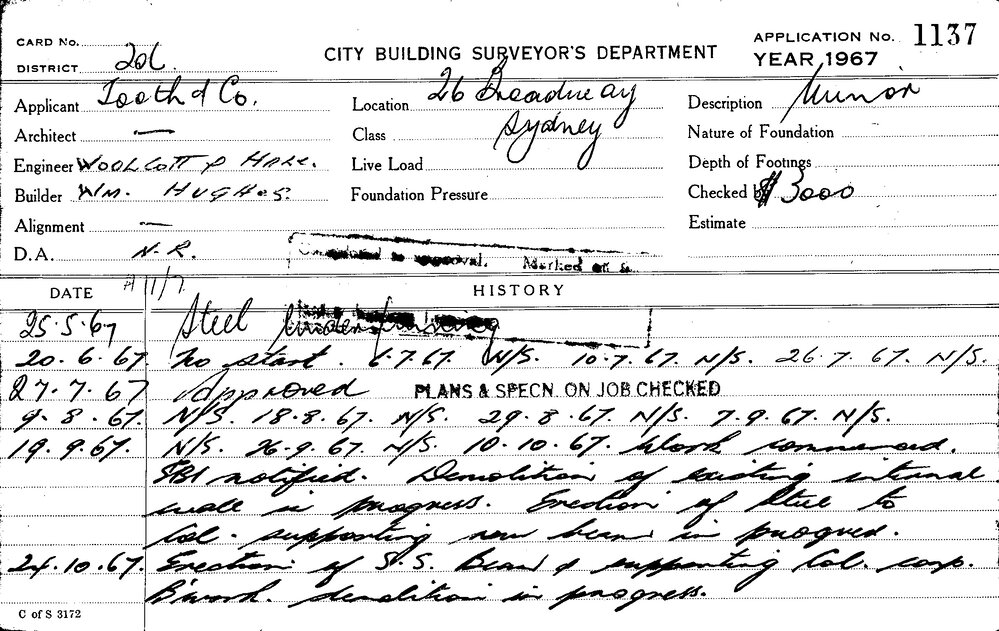 CARD No.
CITY BUILDING SURVEYOR'S DEPARTMENT
APPLICATION No. 1137
DISTRICT 20L
YEAR 1967
Applicant Tooth & Co.
Location 26 Broadway Sydney
Description Minor
Architect —
Class
Nature of Foundation
Engineer WOOLCOTT & HALL.
Live Load
Depth of Footings
Builder WM. HUGHES.
Foundation Pressure
Checked by $3000
Alignment —
Estimate
D.A. N.R.
approval. Marked off
DATE
HISTORY
25.5.67 Steel
20.6.67. No start. 6.7.67. N/S. 10.7.67. N/S. 26.7.67. N/S.
27.7.67 Approved PLANS & SPECN. ON JOB CHECKED
9.8.67. N/S. 18.8.67. N/S. 29.8.67. N/S. 7.9.67. N/S.
19.9.67. N/S. 26.9.67. N/S. 10.10.67. Work commenced.
notified. Demolition of existing internal
wall in progress. Erection of steel to
Col. supporting new beam in progress.
24.10.67. Erection of S.S. Beam & supporting Col. comp.
B'work. demolition in progress.
C of S 3172